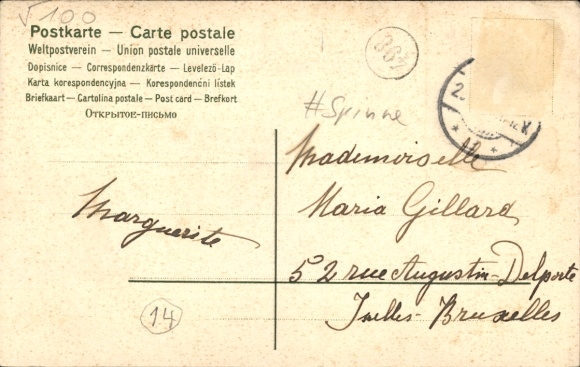 √100
Postkarte — Carte postale
Weltpostverein — Union postale universelle
Dopisnice — Correspondenzkarte — Levelező-Lap
Karta korespondencyjna — Korespondenční listek
Briefkaart — Cartolina postale — Post card — Brefkort
Открытое-письмо
#Spinne
Mademoiselle
Maria Gillard
52 rue Augustin-Delporte
Ixelles-Bruxelles
Marguerite
14